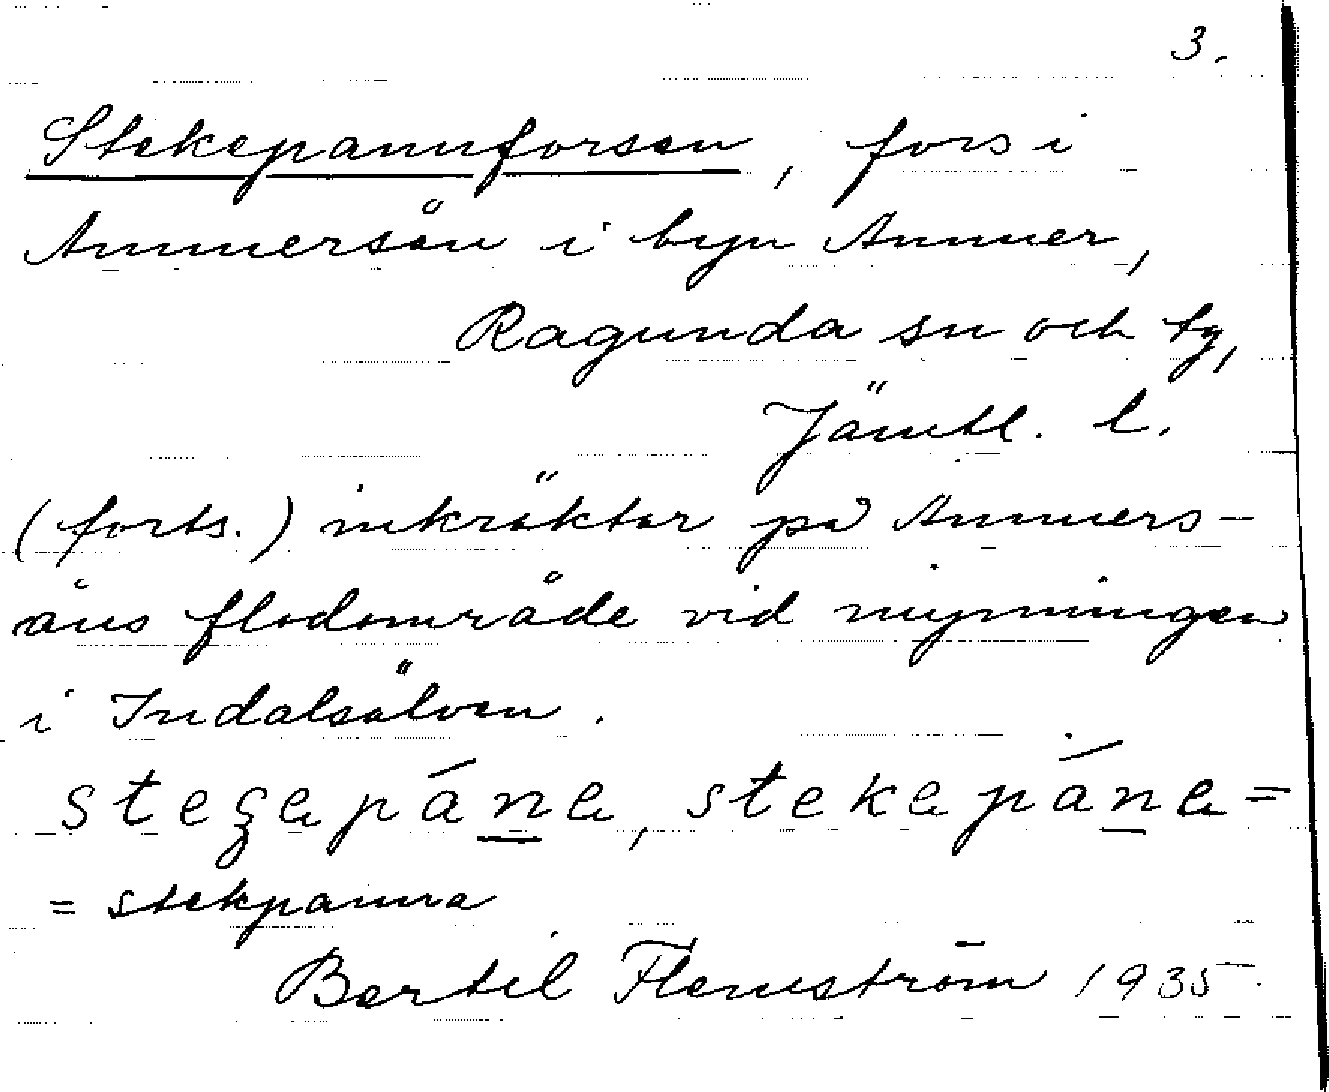 3.
Stekepannforsen, fors i
Ammersån i byn Ammer,
Ragunda sn och tg,
Jämtl. l.
(forts.) inkräktar på Ammers-
åns flodområde vid mynningen
i Indalsälven.
stegapána, stekapána =
= stekpanna
Bertil Flemström 1935.